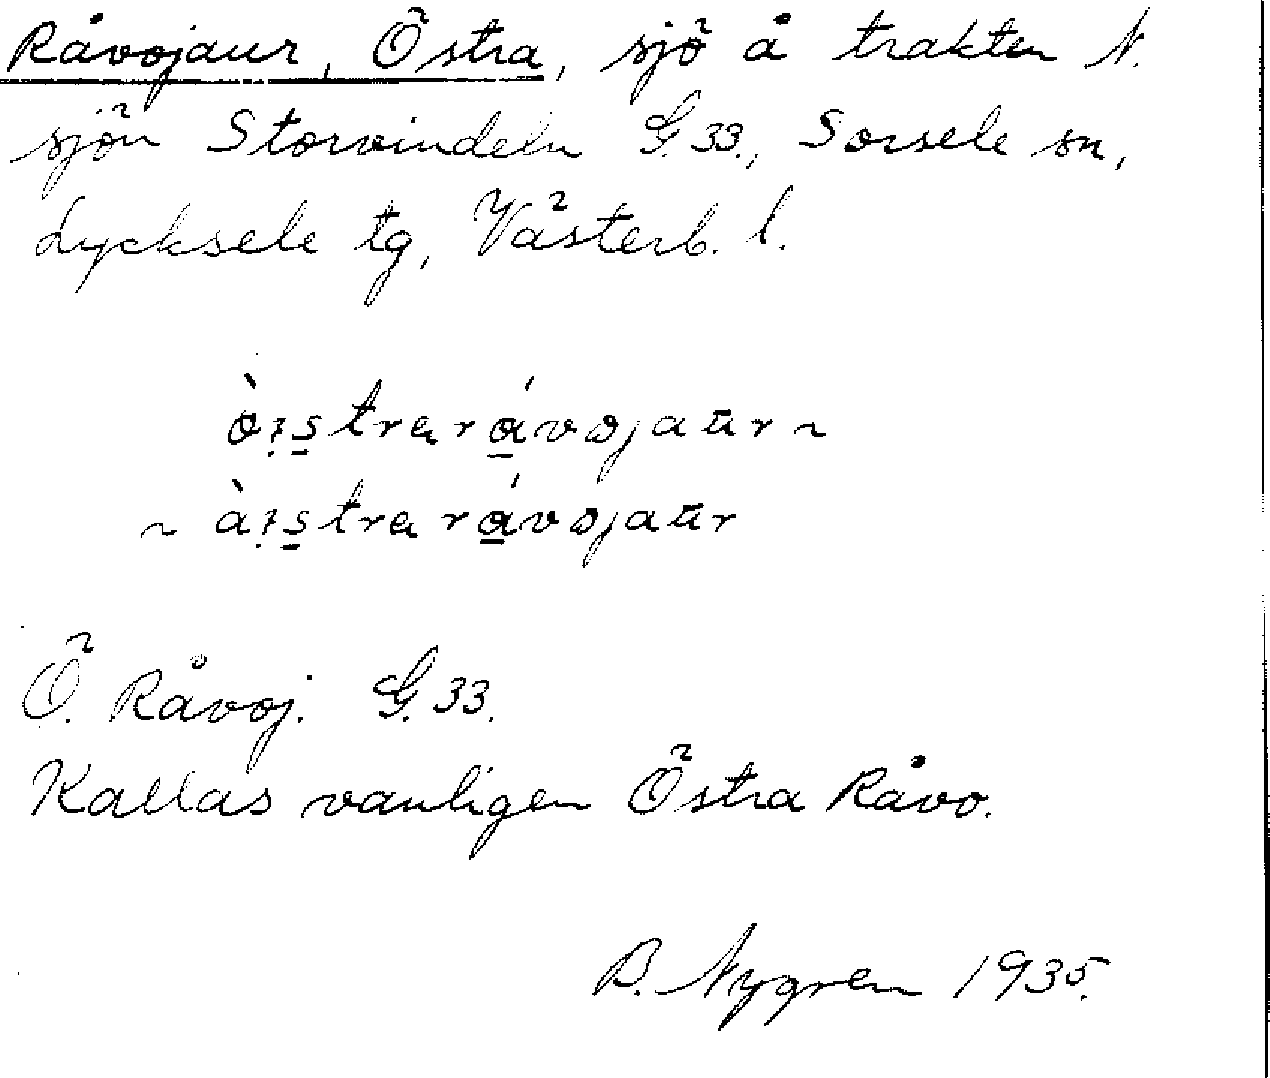 Råvojaur, Östra, sjö å trakten N.
sjön Storvindeln G. 33., Sorsele sn,
Lycksele tg, Västerb. l.
Ö. Råvoj. G. 33.
Kallas vanligen Östra Råvo.
B. Nygren 1935.